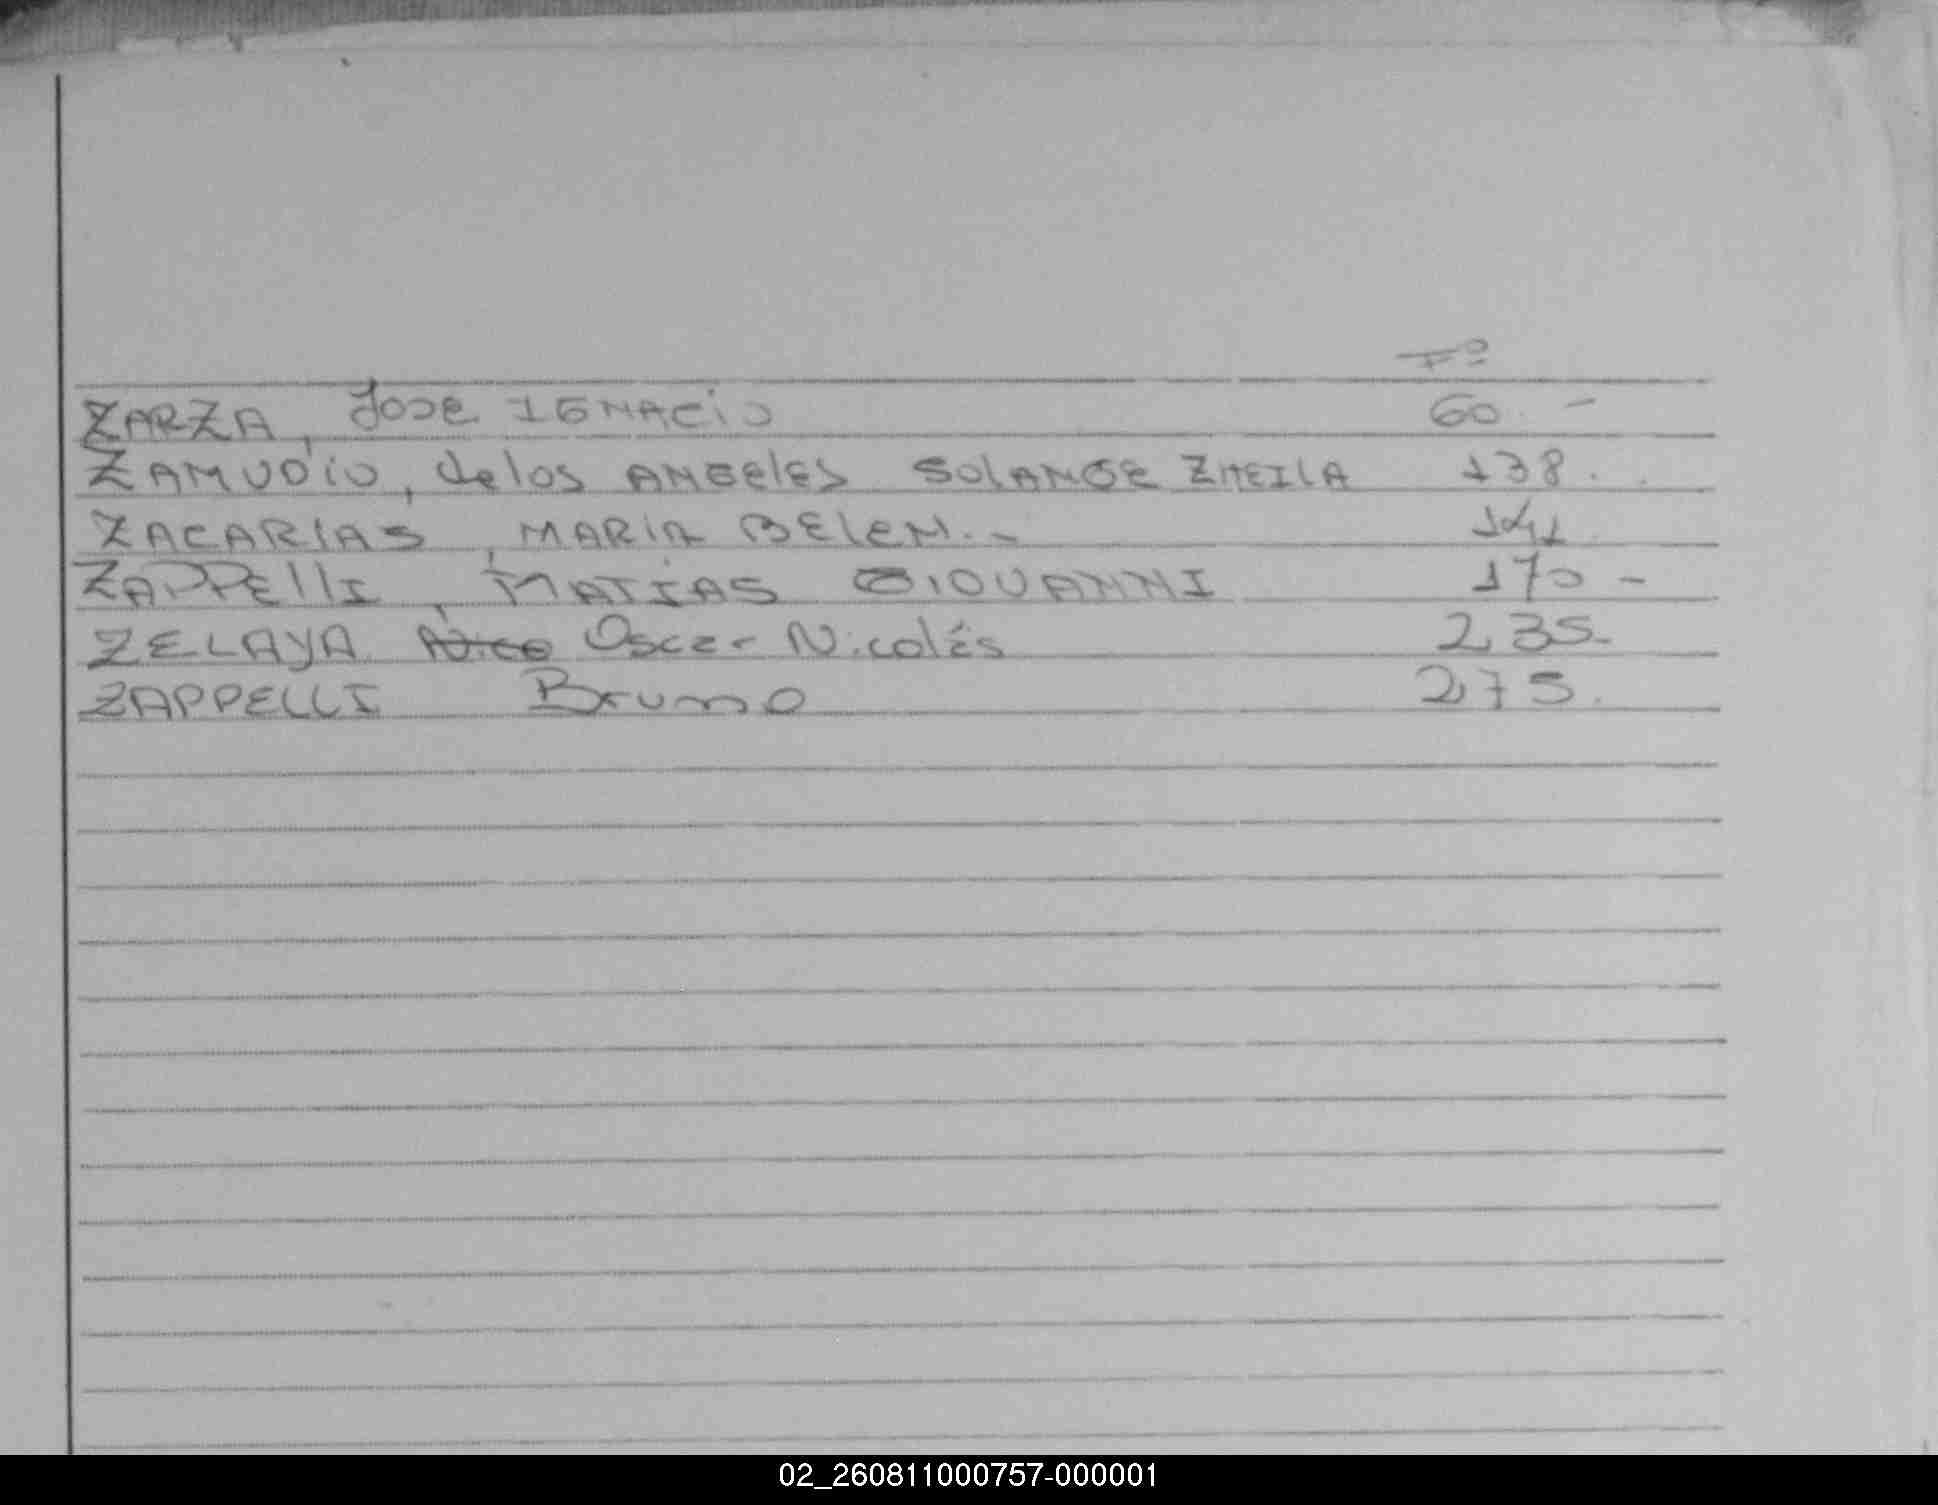 Fº
ZARZA, JOSE IGNACIO 60. -
ZAMUDIO, de los ANGELES SOLANGE ZHEILA 138.
ZACARIAS, MARIA BELEN.- 141
ZAPPELLI, MATIAS GIOVANNI 170 -
ZELAYA Nico Oscar Nicolás 235.
ZAPPELLI Bruno 275.
02_260811000757-000001